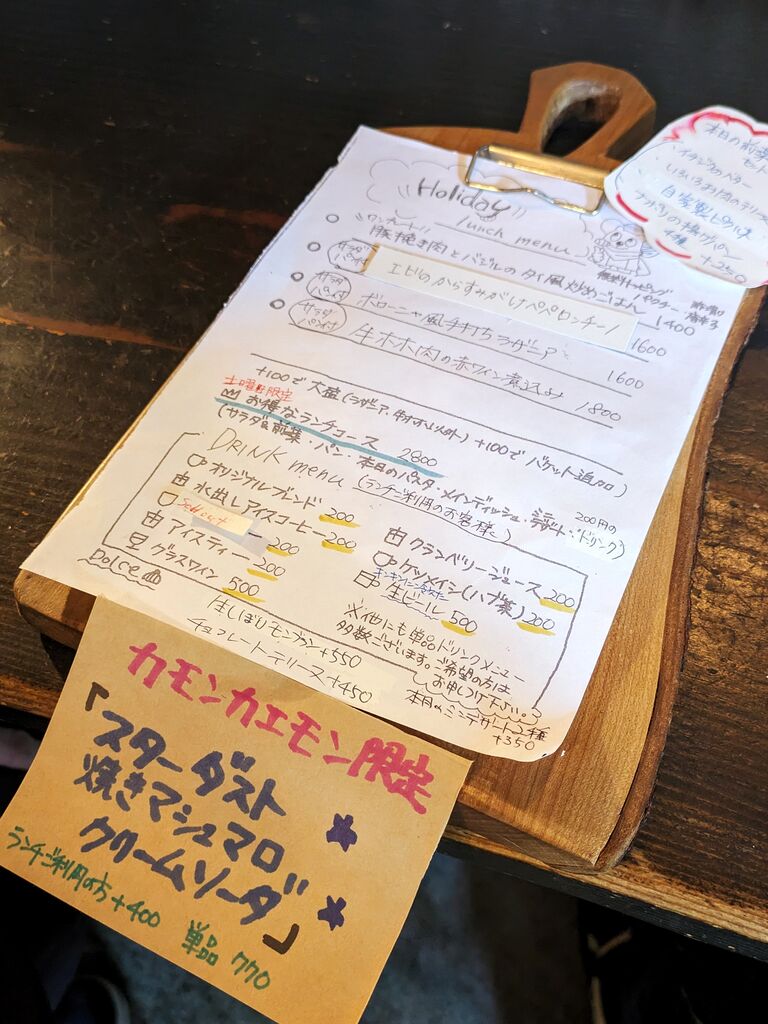 Holiday
lunch menu
ワンプレート!!
豚挽き肉とバジルのタイ風炒めごはん 1400
サラダ パン付
エビのからすみがけペペロンチーノ 1600
サラダ パン付
ボローニャ風手打ちラザニア 1600
サラダ パン付
牛ホホ肉の赤ワイン煮込み 1800
+100で大盛(ラザニア、牛ホホ以外) +100でバケット追加
土曜日限定
お得なランチコース 2800
(サラダ&前菜・パン・本日のパスタ・メインディッシュ・ミニデザート・200円のドリンク)
DRINK menu (ランチご利用のお客様に)
オリジナルブレンド 200
水出しアイスコーヒー 200
Sold out
ー 200
アイスティー 200
グラスワイン 500
クランベリージュース 200
ケツメイシ(ハブ茶) 200
キンキンに冷えた
生ビール 500
※他にも単品ドリンクメニュー
多数ございます。ご希望の方は
お申しつけ下さい。
Dolce
生しぼりモンブラン +550
チョコレートテリーヌ +450
本日のミニデザート2種
+350
本日の前菜
セット
自家製
+250
カモンカエモン限定
「スターダスト
焼きマシュマロ
クリームソーダ」
ランチご利用の方 +400 単品 770